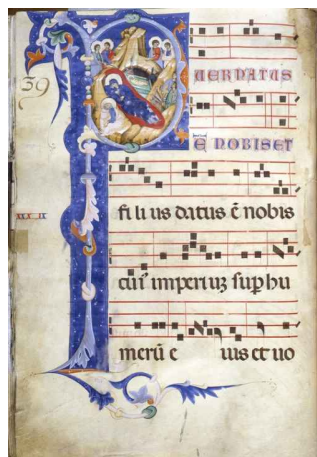 39
P UER NATUS
E NOBIS ET
xxxix
fi li us datus ē nobis
cui' imperiuʒ suꝑ hu
merū e ius et uo